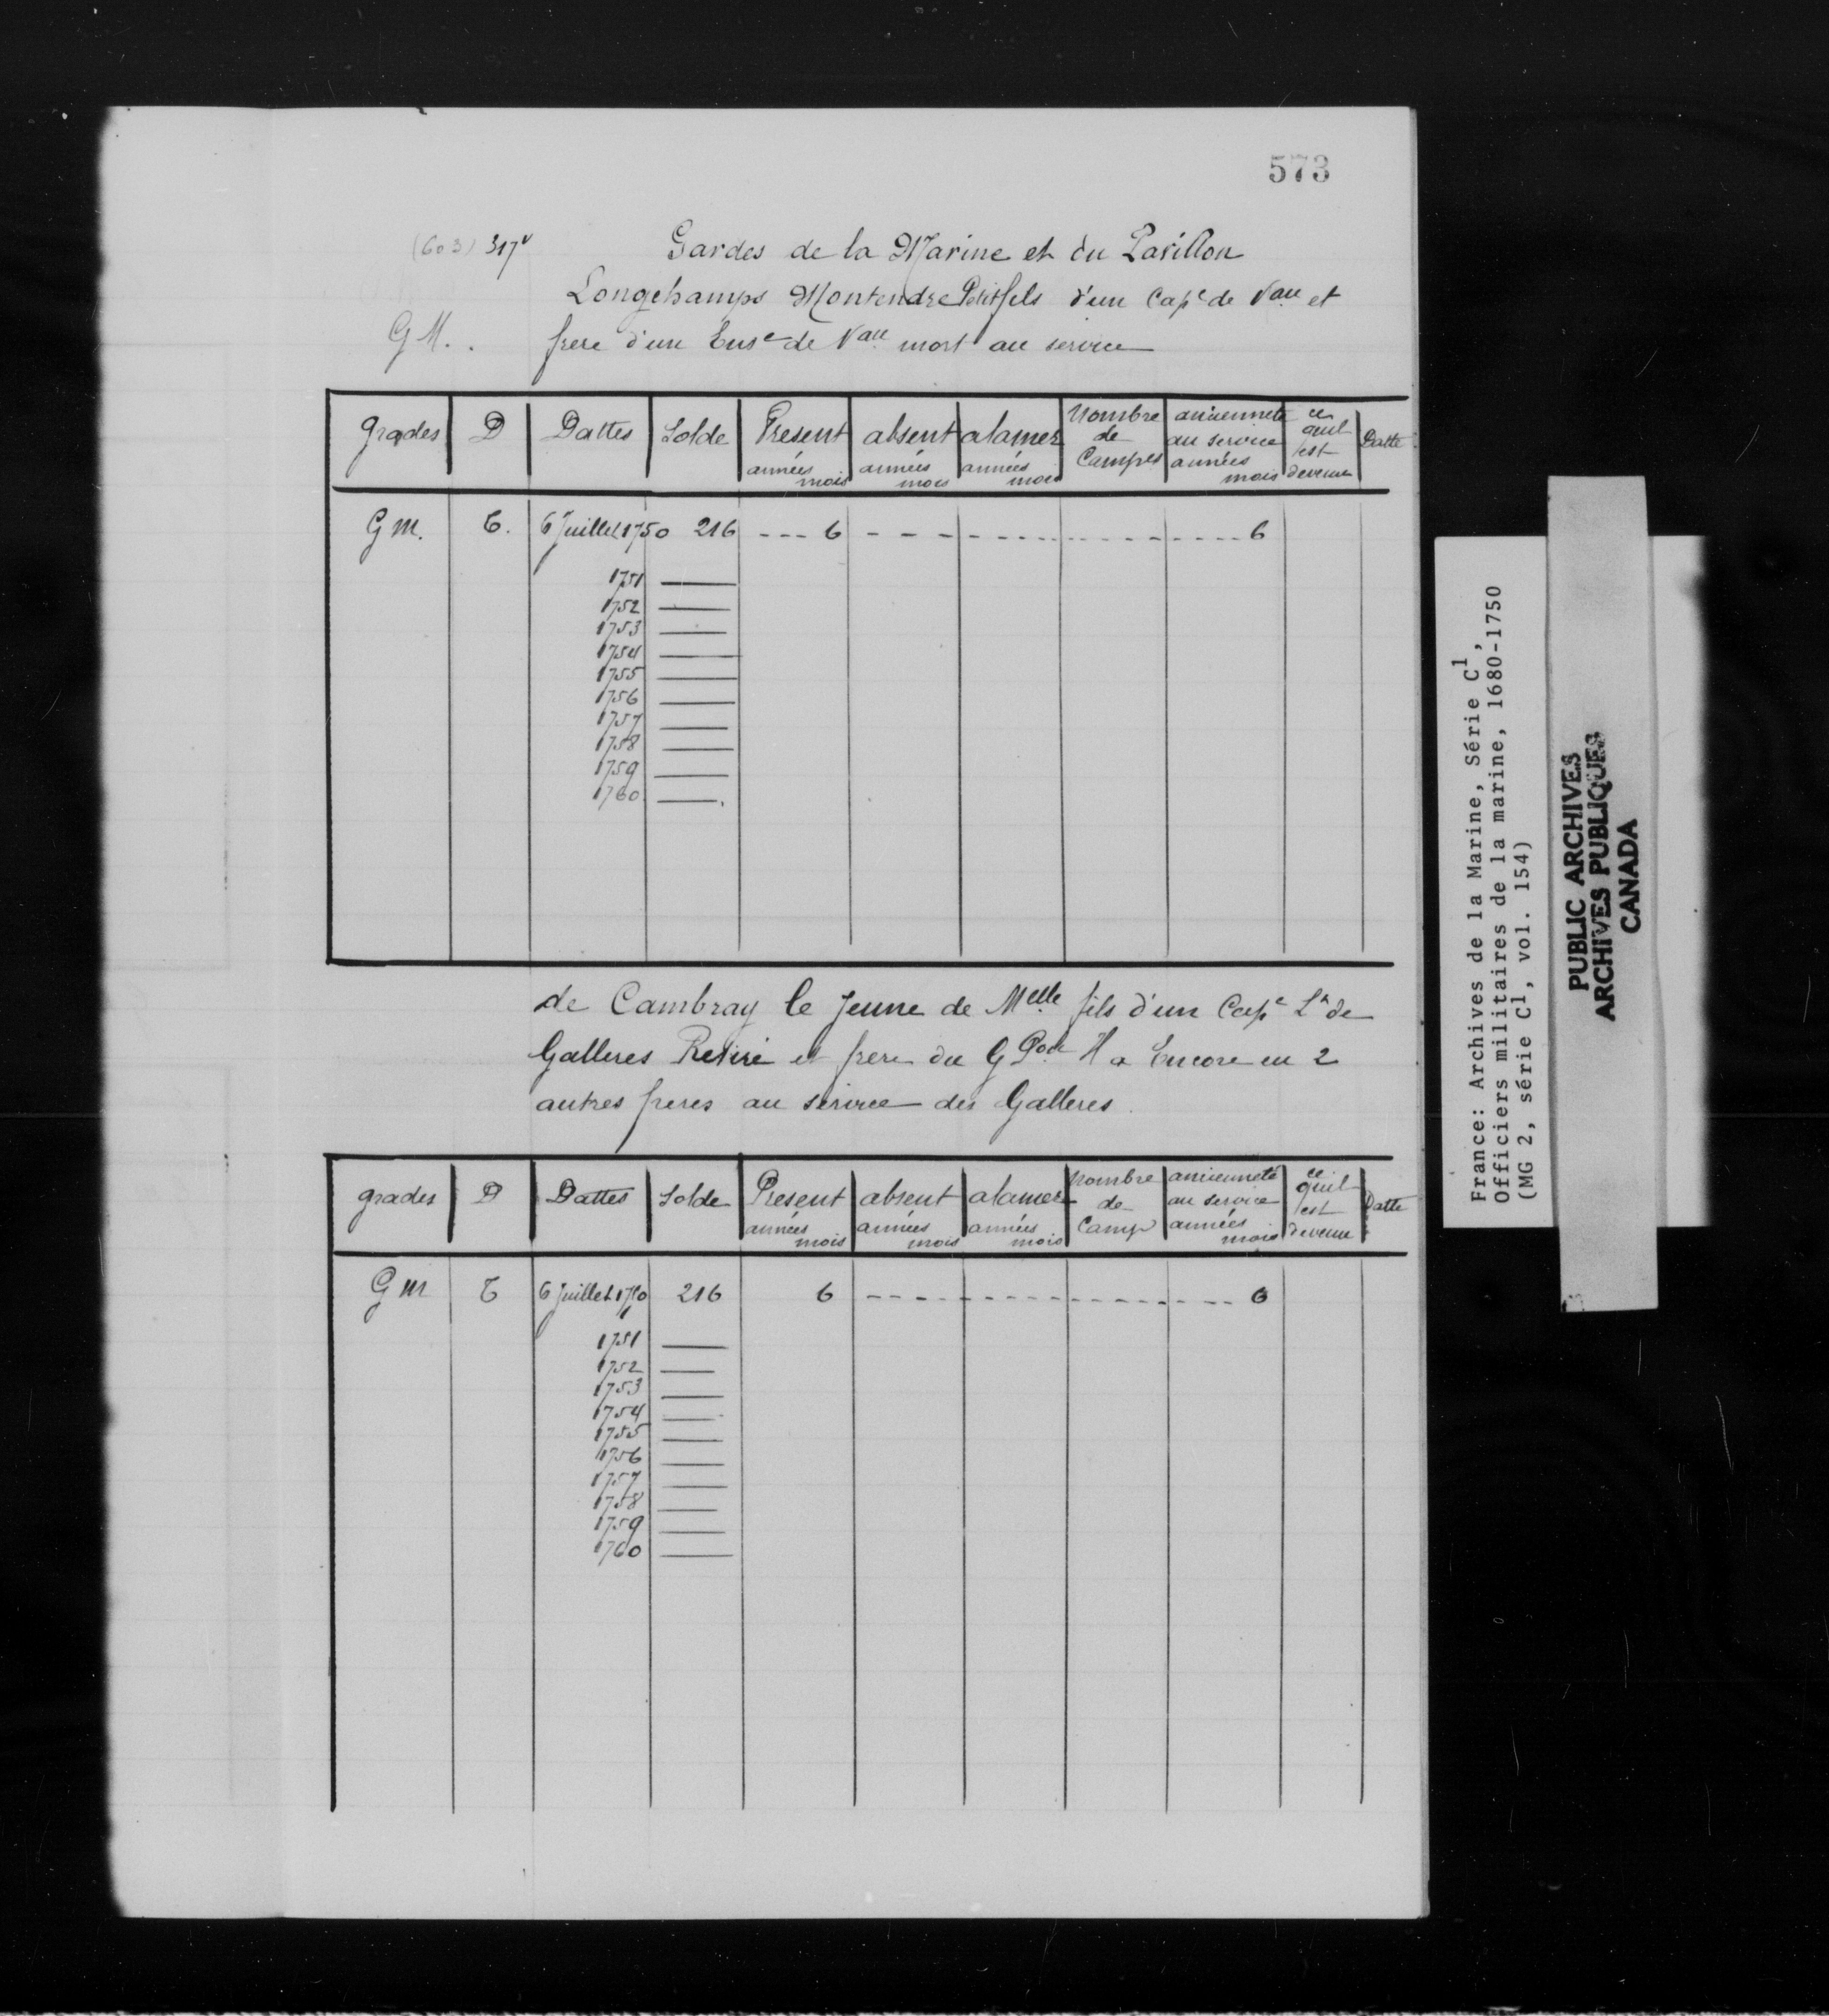 573
(603) 317v
Gardes de la Marine et du Pavillon
Longchamps Montendre Petit fils d'un Cape de Vau et
G M. . frere d'un Ense de Vau mort au service
grades D Dattes Solde Present absent alamer Nombre de Campes ancienneté au service ce quil est devenu Datte
années mois années mois années mois années mois
G M. T. 6 Juillet 1750 216 - - - 6 - - - - - - - - - - - - - - - - 6
1751 ———
1752 ———
1753 ———
1754 ———
1755 ———
1756 ———
1757 ———
1758 ———
1759 ———
1760 ———.
de Cambray le Jeune de Melle fils d'un Cape Lt de
Galleres Retiré et frere du G Pon Il a Encore eu 2
autres freres au service des Galleres.
grades D Dattes Solde Present absent alamer Nombre de Camp ancienneté au service ce quil est devenu Datte
années mois années mois années mois années mois
G M T 6 Juillet 1750 216 6 - - - - - - - - - - - - - - 6
1751 ———
1752 ———
1753 ———
1754 ———
1755 ———
1756 ———
1757 ———
1758 ———
1759 ———
1760 ———
France: Archives de la Marine, Série C1,
Officiers militaires de la marine, 1680-1750
(MG 2, série C1, vol. 154)
PUBLIC ARCHIVES
ARCHIVES PUBLIQUES
CANADA